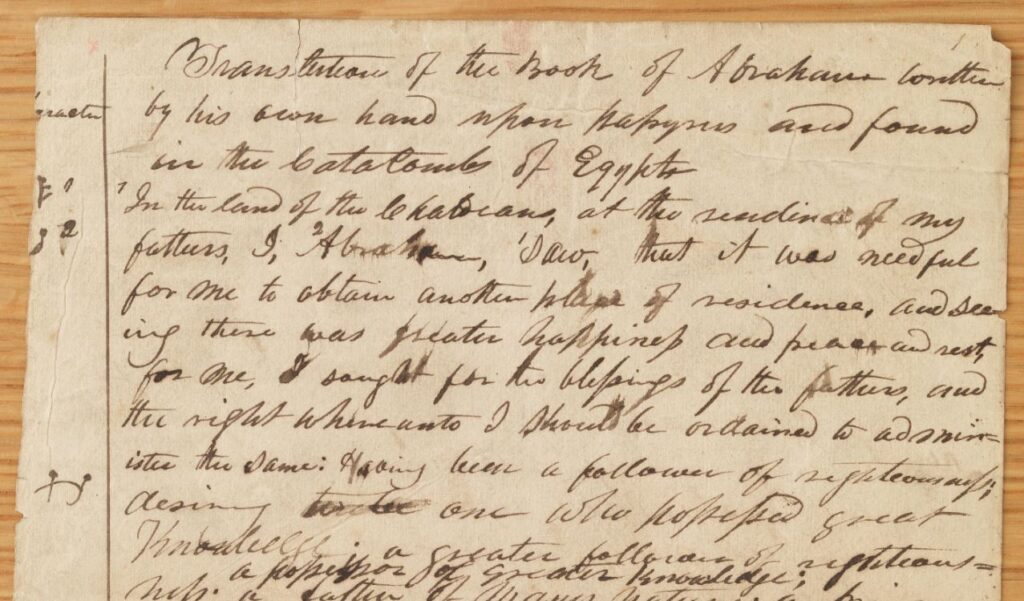 Translation of the Book of Abraham written
by his own hand upon papyrus and found
in the CataCombs of Egypts
1 In the land of the Chaldeans, at the residence of my
fathers, I, 2 Abraham, saw, that it was needful
for me to obtain another place of residence, and see
ing there was greater happiness and peace and rest,
for me, I sought for the blessings of the fathers, and
the right whereunto I should be ordained to admin=
ister the same: Having been a follower of righteousness;
desiring one who possessed great
Knowledge, a greater follower of righteous=
a possessor of greater Knowledge;
ness; a father of many